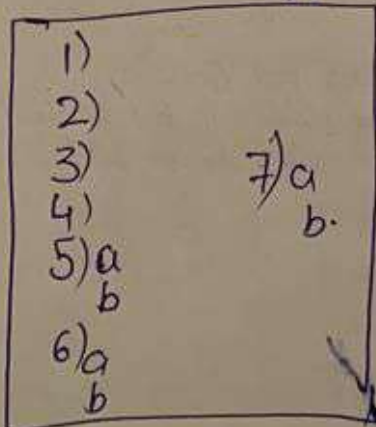 1)
2)
3)
4)
5) a
b
6) a
b
7) a
b.